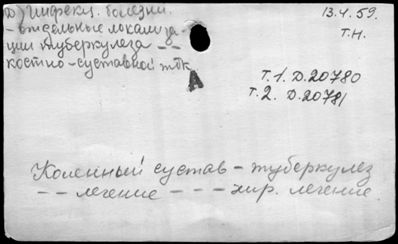 D) Инфекц. болезни.
- отдельные локализа-
ции туберкулеза - -
костно-суставной тбк
13.4.59.
Т.Н.
А
т.1. D.20780
т.2. D.20781
Коленный сустав - туберкулез
- - лечение - - - хир. лечение